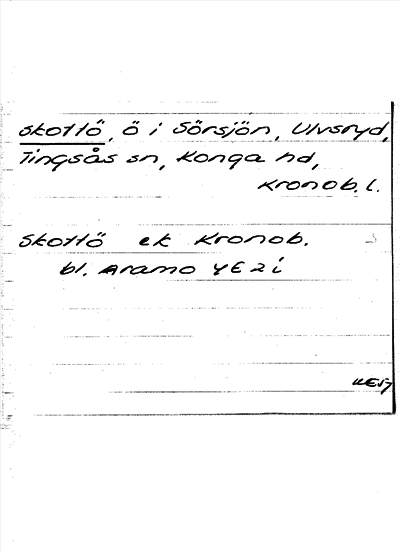 Skottö, ö i Sörsjön, Ulvsryd,
Tingsås sn, Konga hd,
Kronob. l.
Skottö ek Kronob.
bl. Aramo 4E2i